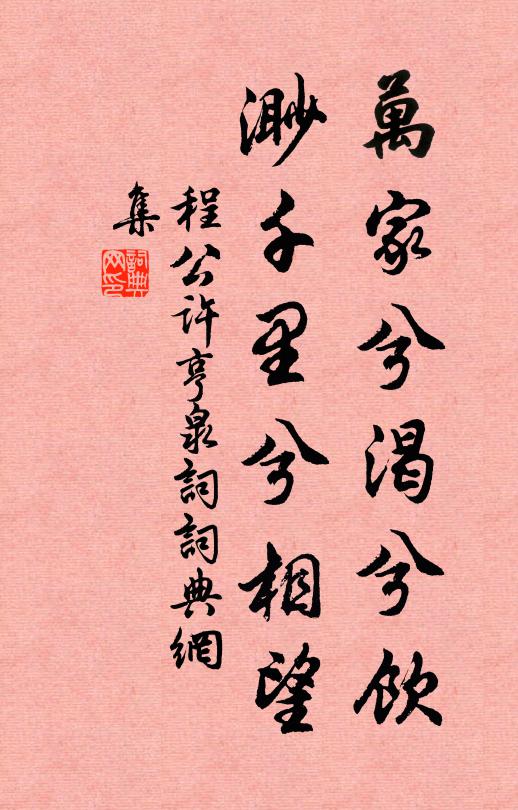 萬家兮渴兮飲
渺千里兮相望
程公許亨泉詞詞典網
集
詞典
网印